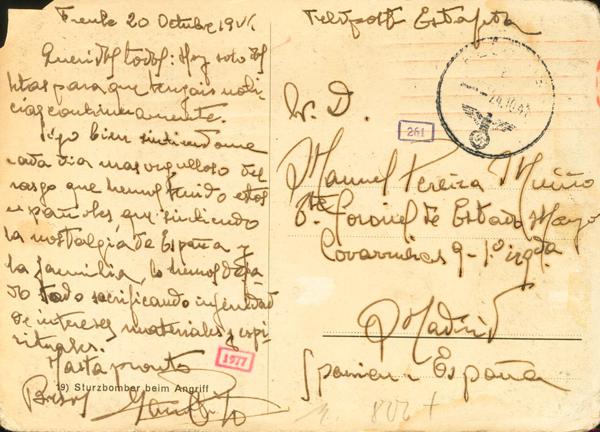 Frente 20 Octubre 1941.
Queridos todos: Hoy solo dos
letras para que tengais noti-
cias continuamente.
Sigo bien sintiendome
cada dia mas orgulloso del
rasgo que hemos tenido estos
españoles que sintiendo
la nostalgia de España y
la familia, lo hemos deja-
do todo sacrificando infinidad
de intereses materiales y espi-
rituales.
Hasta pronto
Besos
19) Sturzbomber beim Angriff
1977
Feldpost Estafeta
24.10.41
261
Sr. D.
Manuel Pereira Muiño
Tte Coronel de Estado Mayor
Covarrubias 9 - 1º izqda
Madrid
Spanien - España